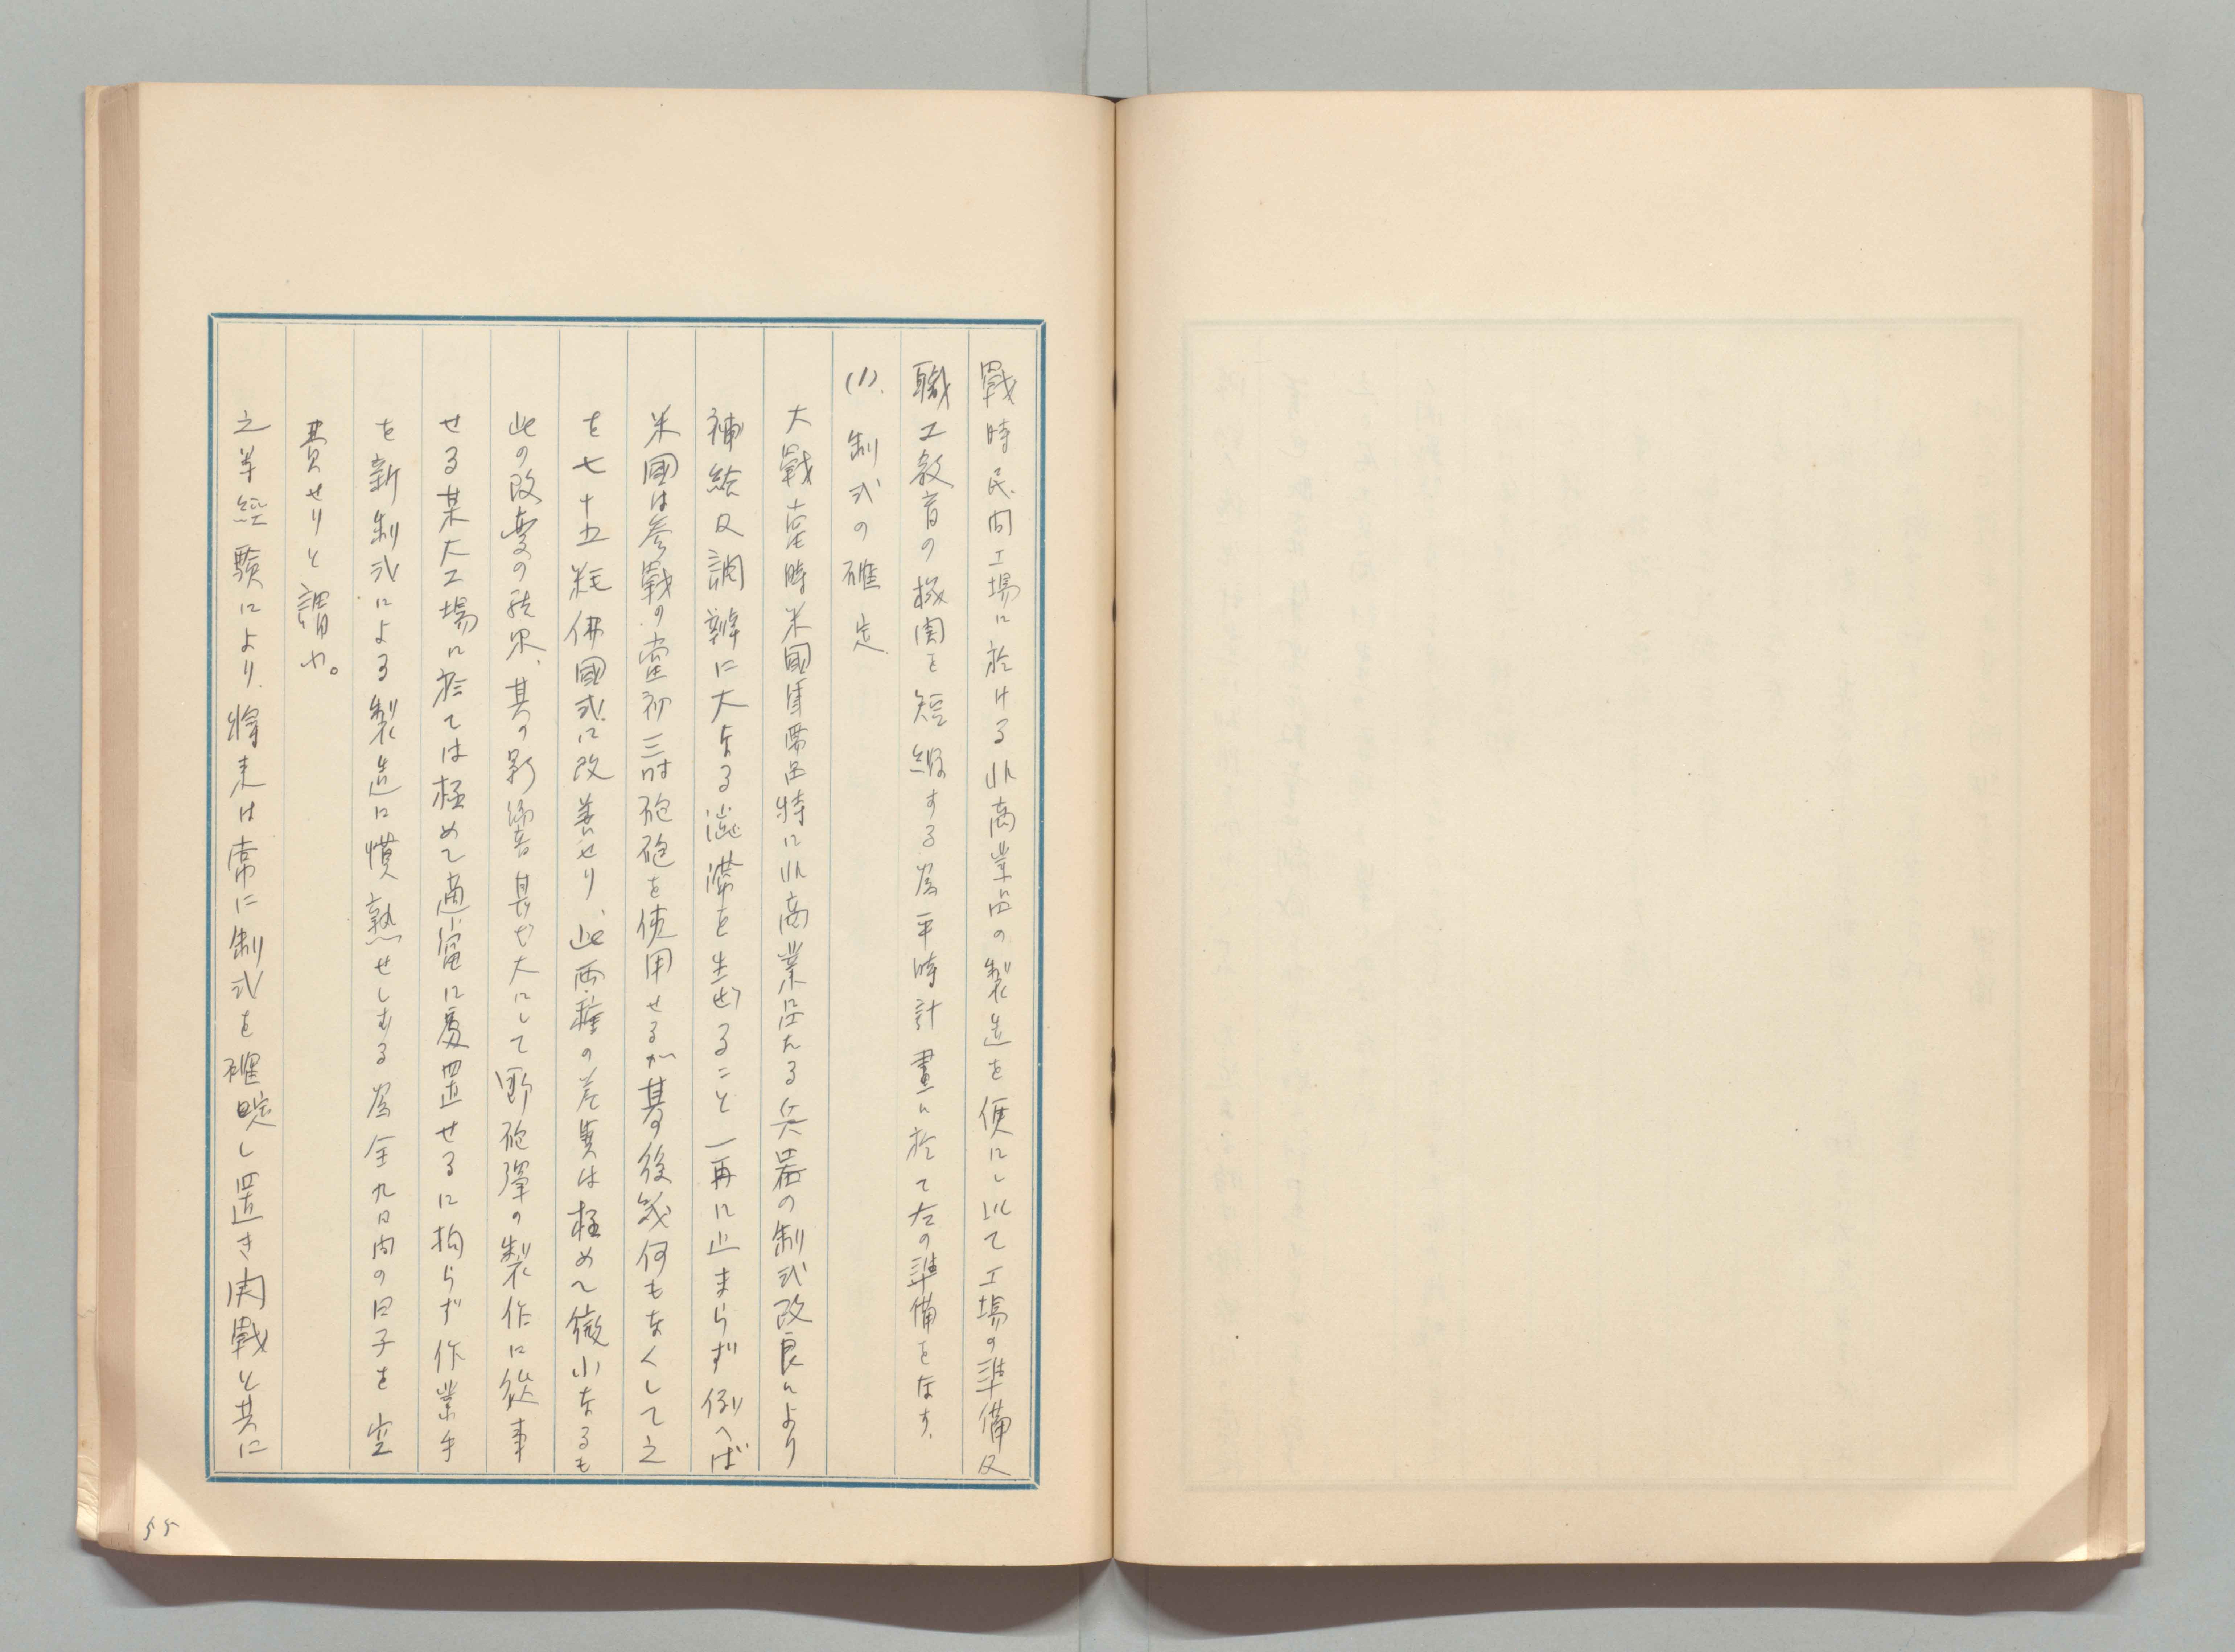 戰時民間工場に於ける非商業品の製造を便にし以て工場の準備及
職工教育の機関を短縮する為平時計畫に於て左の準備をなす.
(1). 制式の確定
大戰當時米國軍需品特に非商業品たる兵器の制式改良により
補給及調辦に大なる澁滞を生せること一再に止まらず例へば
米國は參戰の當初三吋砲砲を使用せるが其後幾何もなくして之
を七十五粍佛國式に改善せり、此両種の差異は極めて微小なるも
此の改变の結果、其の影響甚だ大にして野砲彈の製作に從事
せる某大工場に於ては極めて適當に處置せるに拘らず作業手
を新制式による製造に慣熟せしむる為全九日間の日子を空
費せりと謂ふ。
之等經驗により.將来は常に制式を確定し置き開戰と共に
55